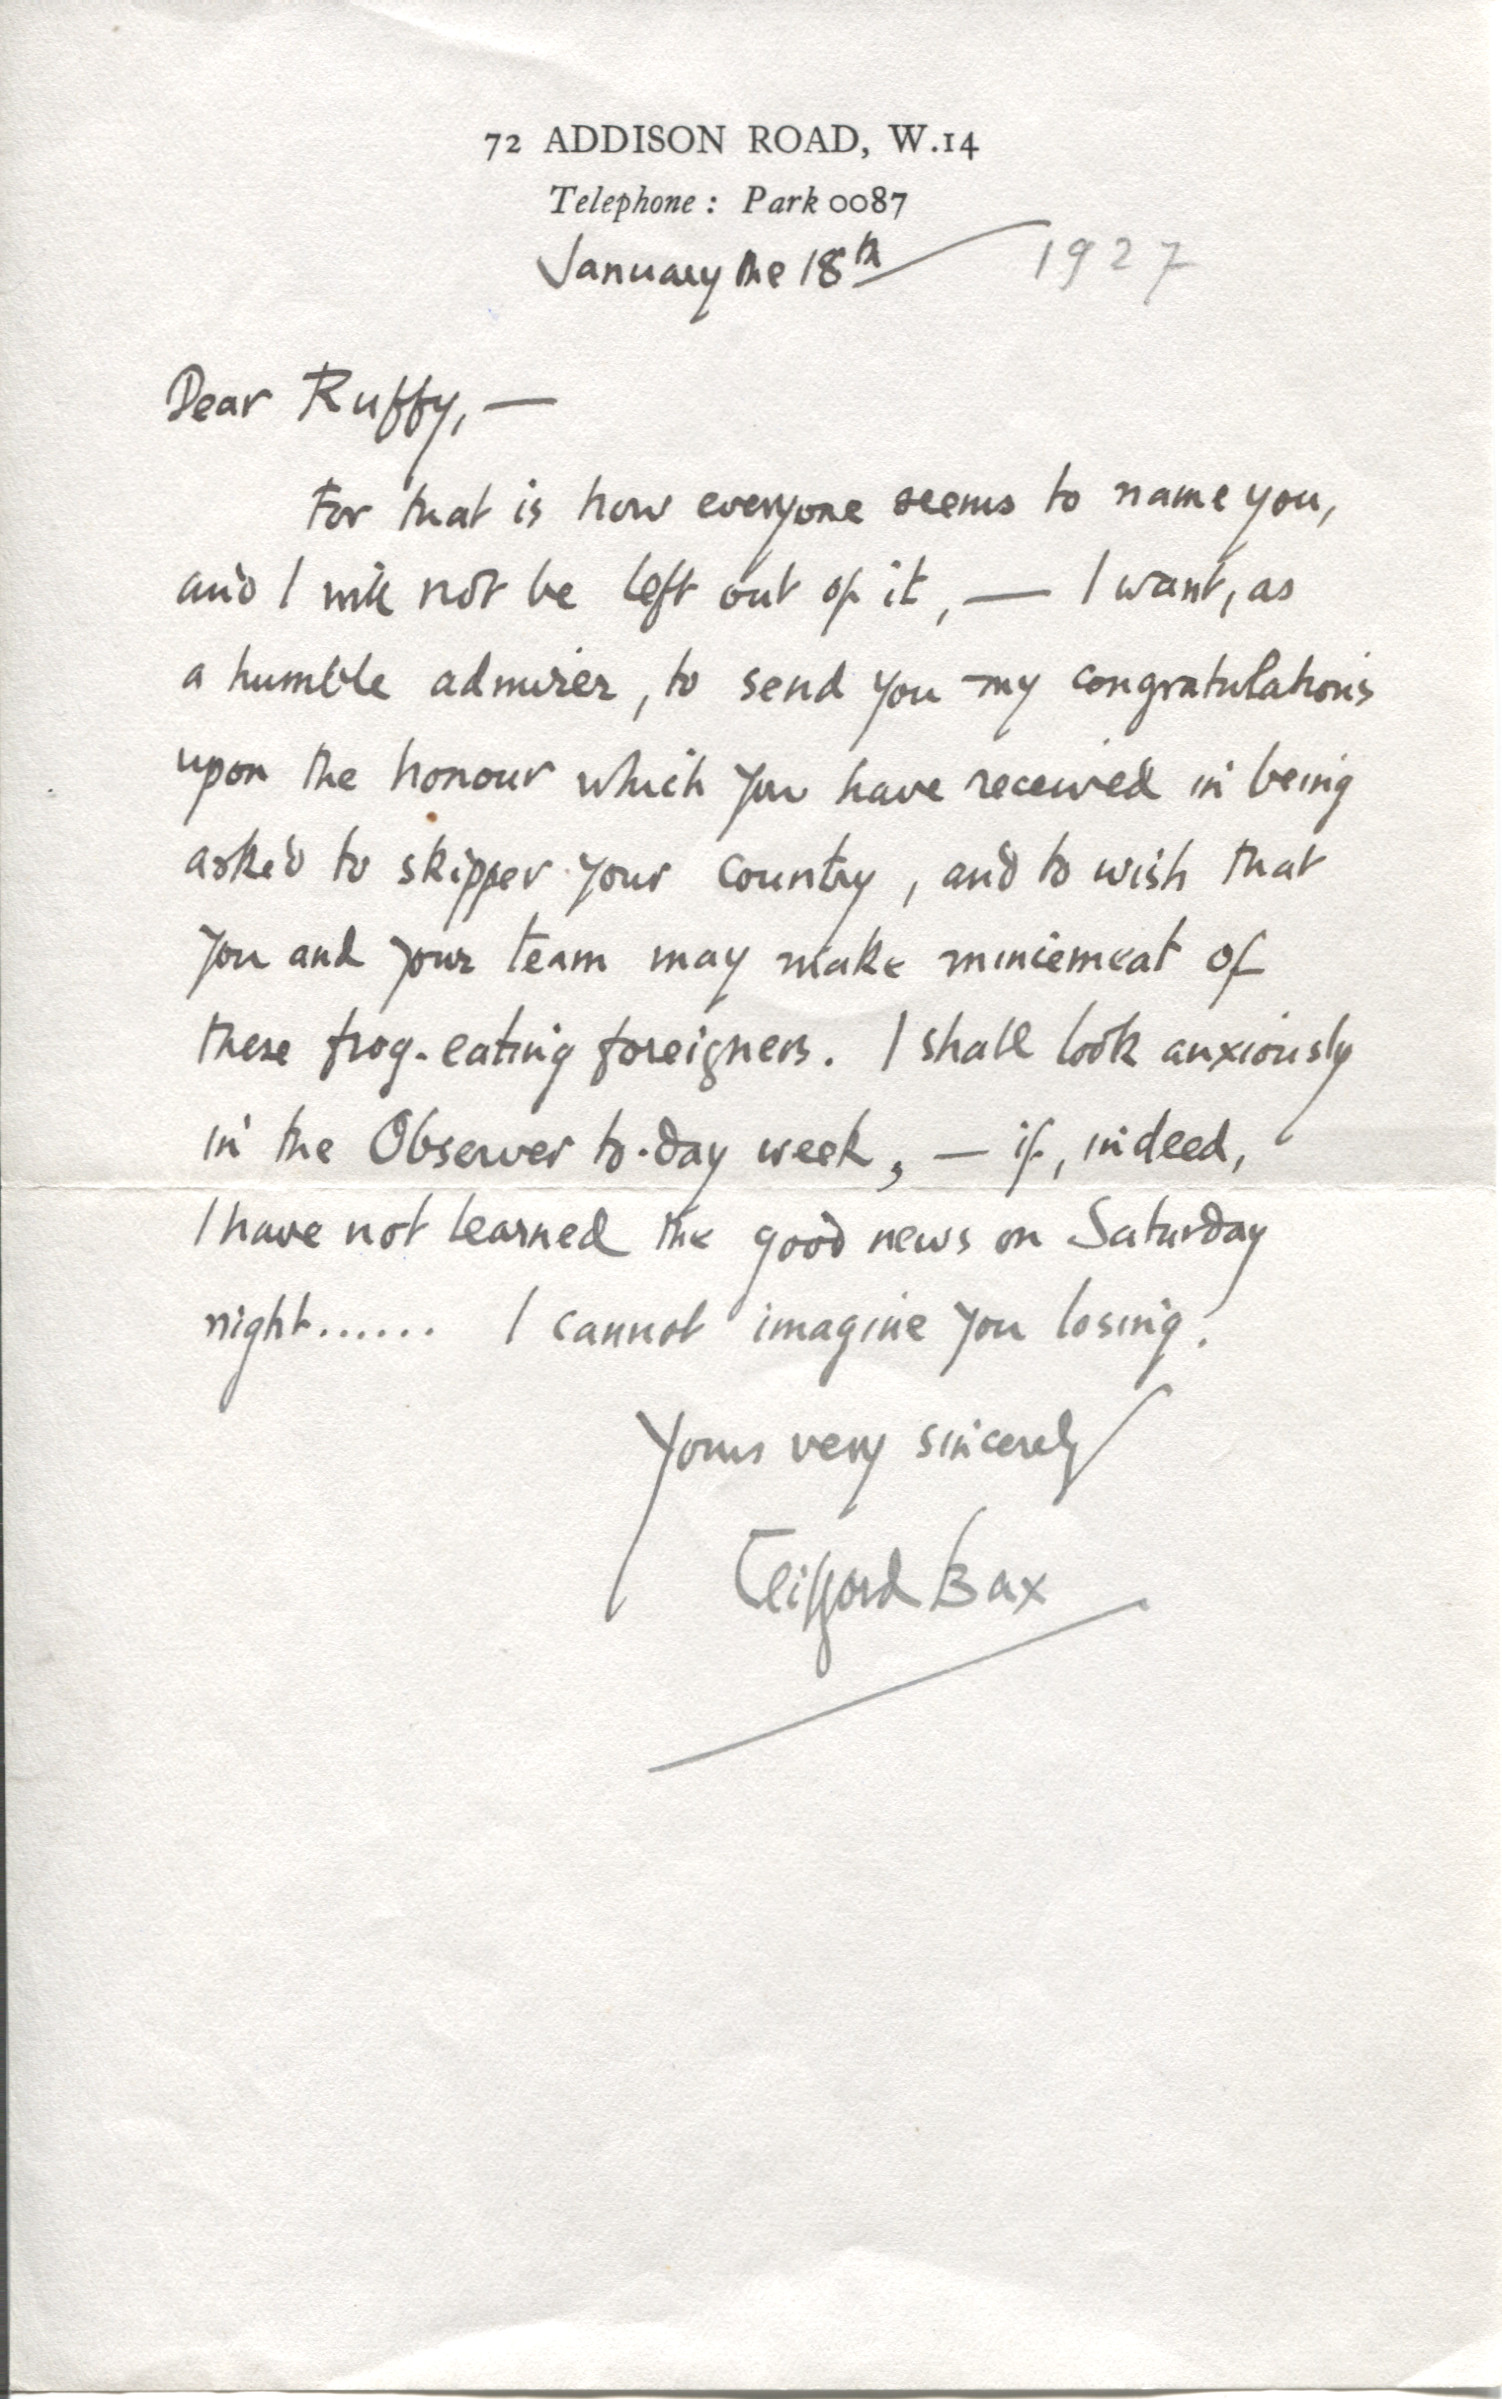 72 ADDISON ROAD, W.14
Telephone: Park 0087
January the 18th 1927
Dear Ruffy, —
For that is how everyone seems to name you,
and I will not be left out of it, — I want, as
a humble admirer, to send you my congratulations
upon the honour which you have received in being
asked to skipper your country, and to wish that
you and your team may make mincemeat of
these frog-eating foreigners. I shall look anxiously
in the Observer to-day week, — if, indeed,
I have not learned the good news on Saturday
night...... I cannot imagine you losing!
Yours very sincerely
Clifford Bax